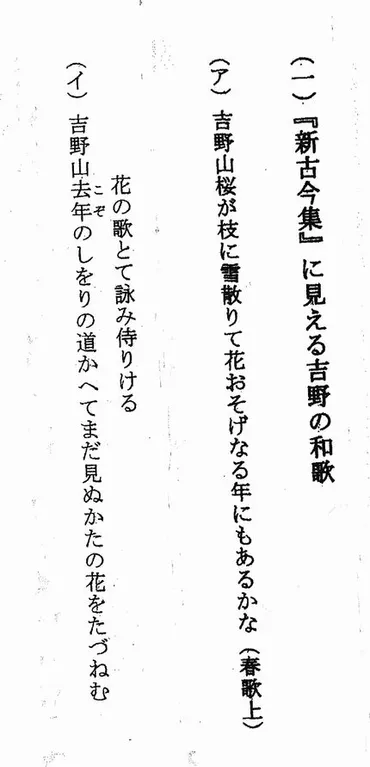 (一)『新古今集』に見える吉野の和歌
(ア)吉野山桜が枝に雪散りて花おそげなる年にもあるかな(春歌上)
花の歌とて詠み侍りける
(イ)吉野山去年のしをりの道かへてまだ見ぬかたの花をたづねむ
こぞ